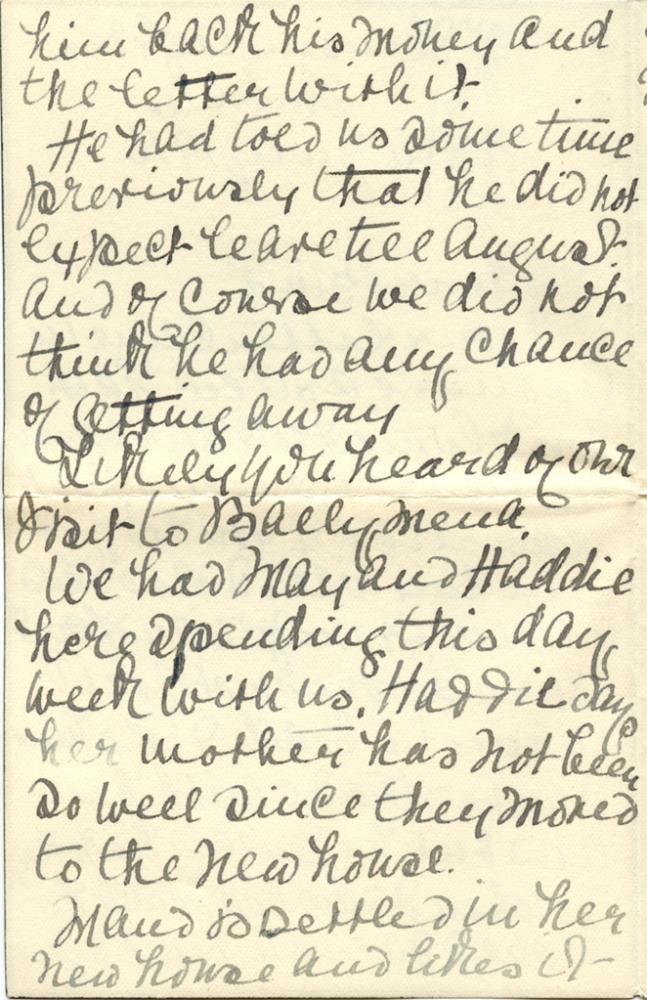 him back his money and
the letter with it
He had told us some time
previously that he did not
expect leave till August.
and of course we did not
think he had any chance
of getting away
Likely you heard of our
visit to Ballymena.
We had May and Haddie
here spending this day
week with us. Haddie says
her mother has not been
so well since they moved
to the new house.
Maud is settled in her
new house and likes it-